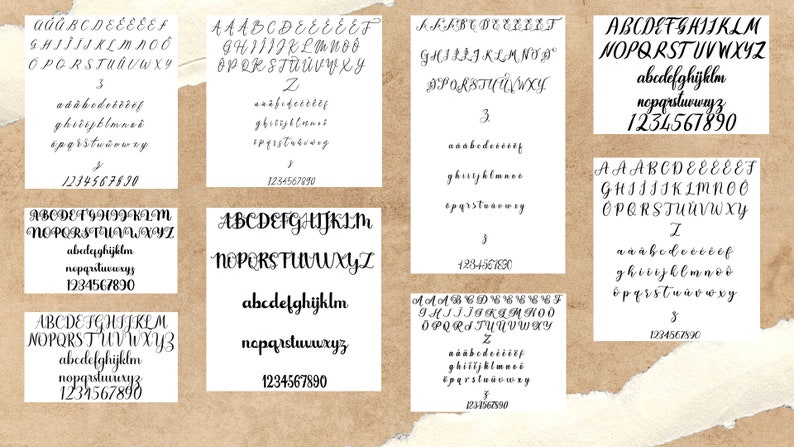 A Â Â B C D E É È Ê Ë F
G H I Î Ï J K L M N O Ô
Ö P Q R S T U Û V W X Y
Z
a à â b c d e é è ê ë f
g h i î ï j k l m n o ô
ö p q r s t u û v w x y
z
1234567890
A À Â B C D E É È Ê Ë F
G H I Î Ï J K L M N O Ô
Ö P Q R S T U Û V W X Y
Z
a à â b c d e é è ê ë f
g h i î ï j k l m n o ô
ö p q r s t u û v w x y
z
1234567890
Z
a à â b c d e é è ê ë f
g h i î ï j k l m n o ô
ö p q r s t u û v w x y
z
1234567890
ABCDEFGHIJKLM
NOPQRSTUVWXYZ
abcdefghijklm
nopqrstuvwxyz
1234567890
ABCDEFGHIJKLM
NOPQRSTUVWXYZ
abcdefghijklm
nopqrstuvwxyz
1234567890
ABCDEFGHIJKLM
NOPQRSTUVWXYZ
abcdefghijklm
nopqrstuvwxyz
1234567890
A À Â B C D E É È Ê Ë F
G H I Î Ï J K L M N O Ô
Ö P Q R S T U Û V W X Y
Z
a à â b c d e é è ê ë f
g h i î ï j k l m n o ô
ö p q r s t u û v w x y
z
1234567890
ABCDEFGHIJKLM
NOPQRSTUVWXYZ
abcdefghijklm
nopqrstuvwxyz
1234567890
A À Â B C D E É È Ê Ë F
G H I Î Ï J K L M N O Ô
Ö P Q R S T U Û V W X Y
Z
a à â b c d e é è ê ë f
g h i î ï j k l m n o ô
ö p q r s t u û v w x y
z
1234567890